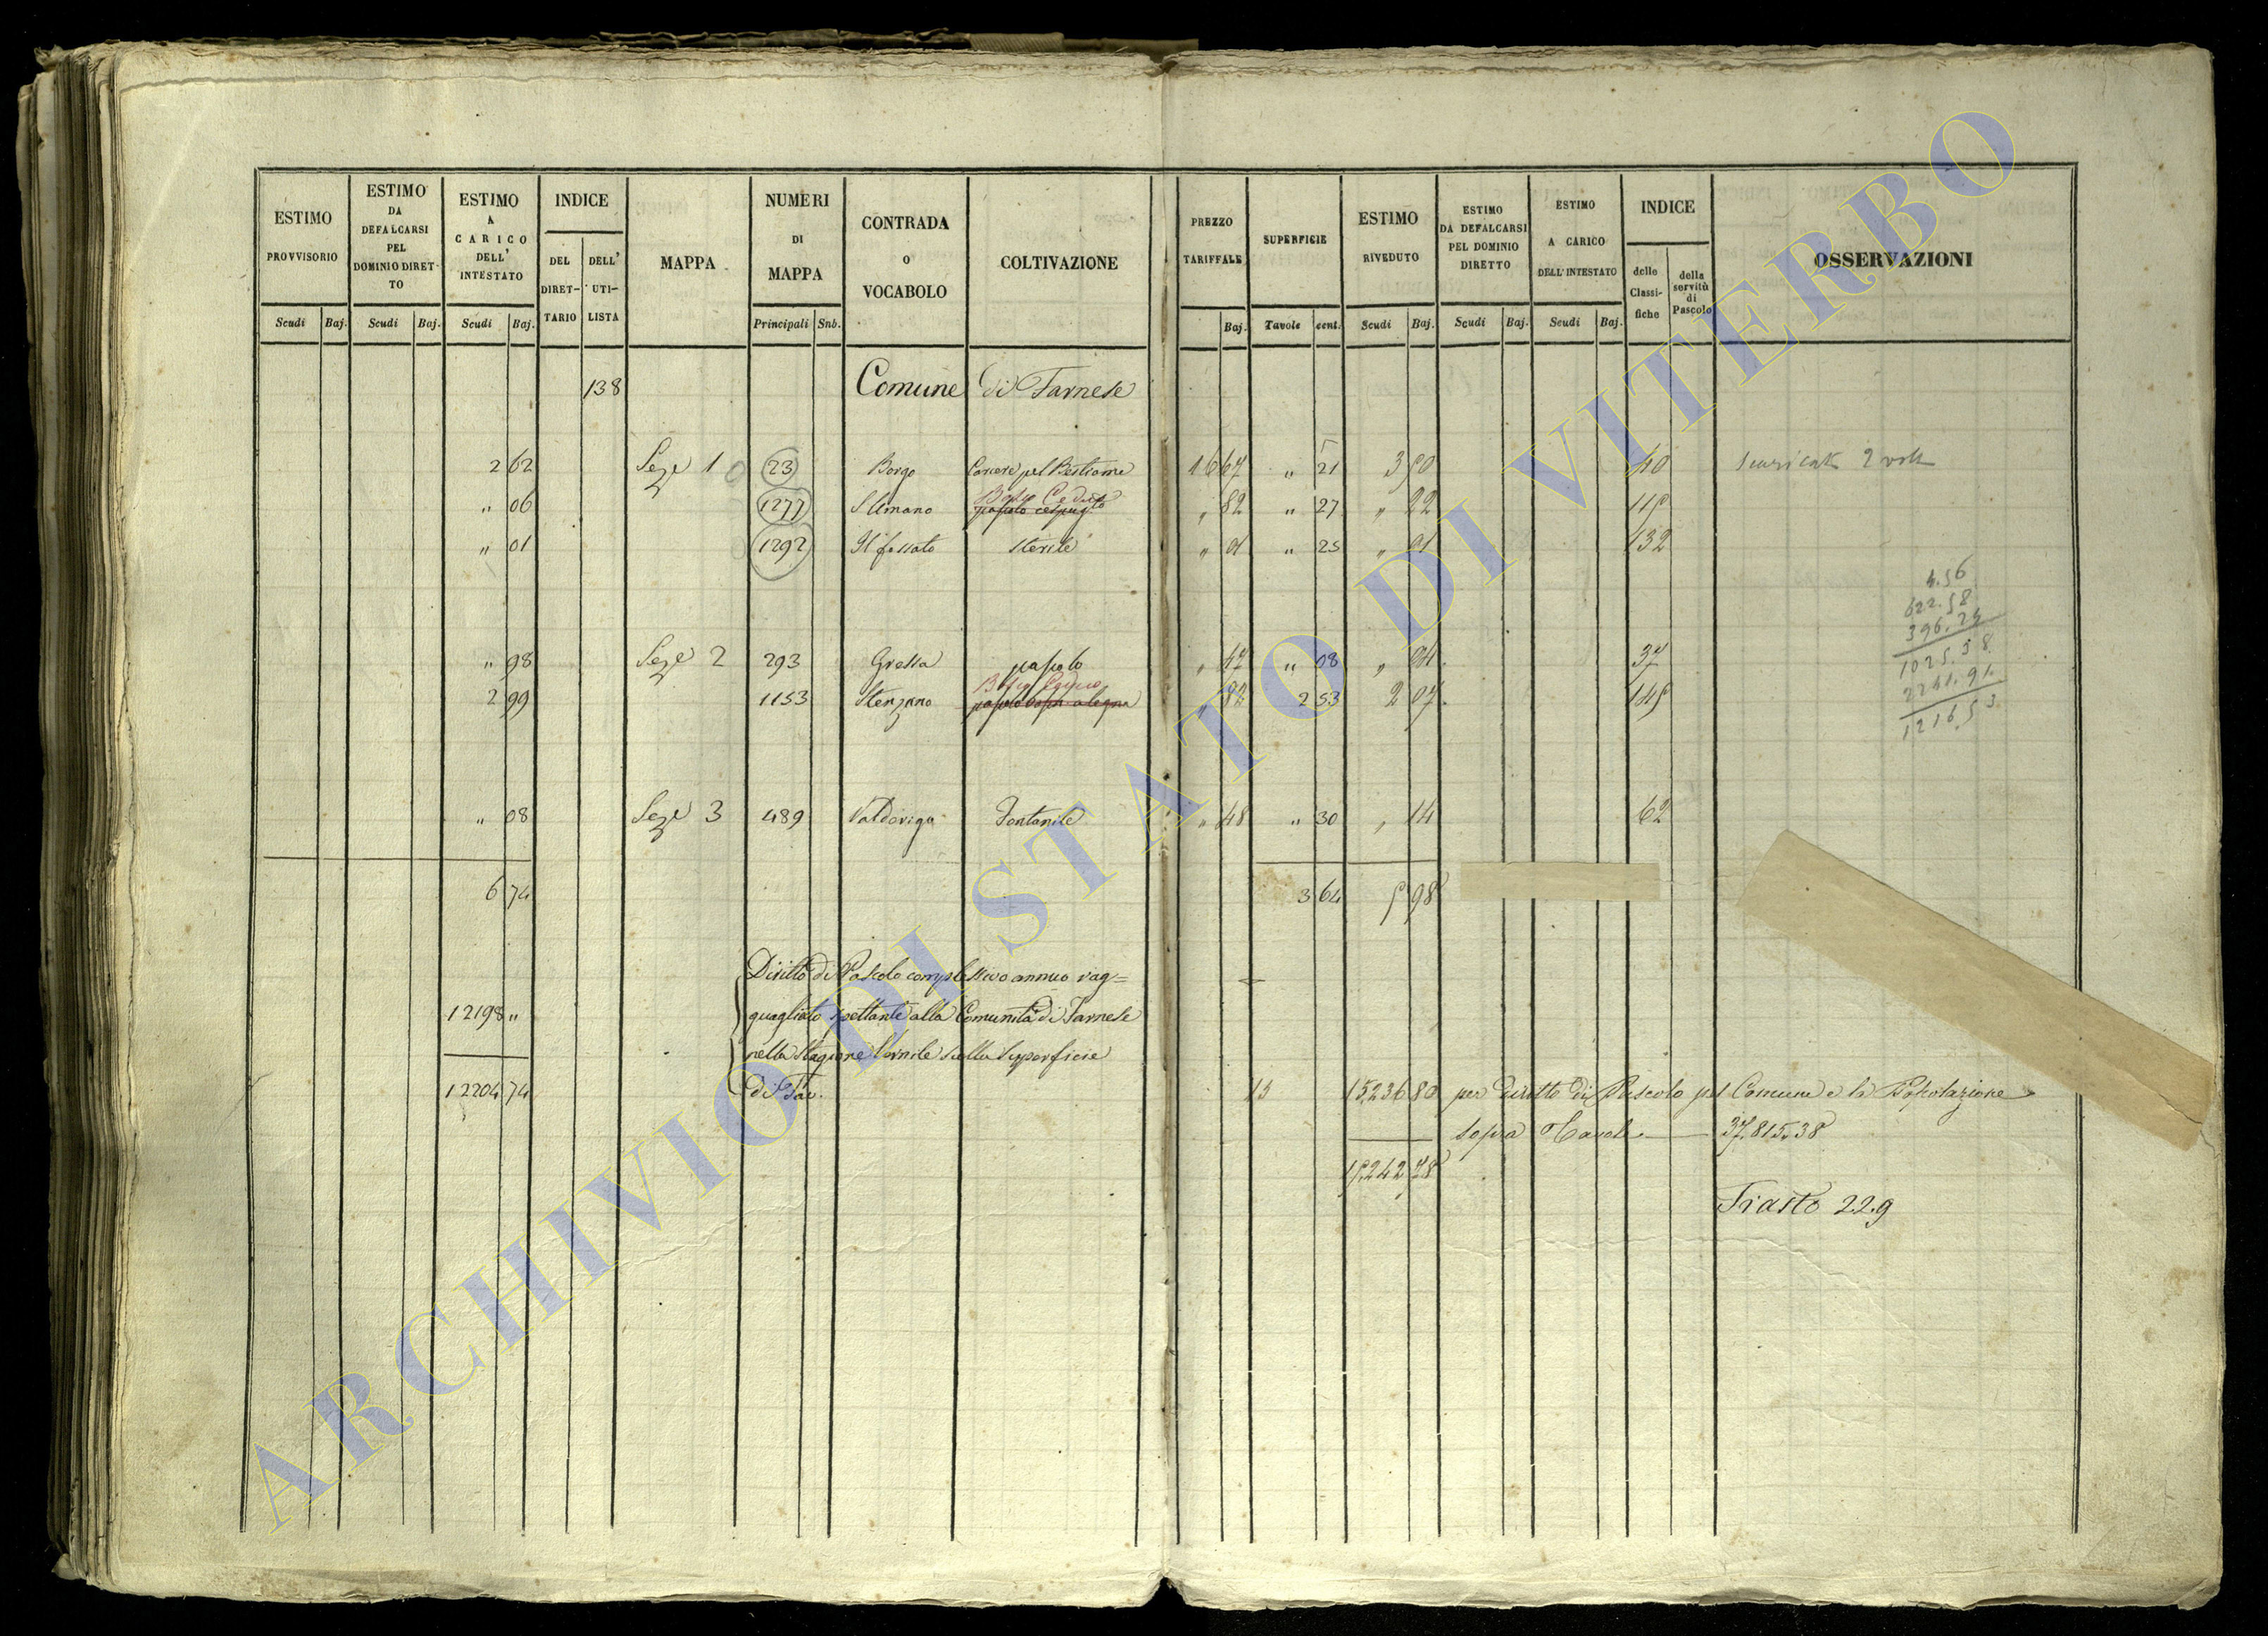 ESTIMO PROVVISORIO
ESTIMO DA DEFALCARSI PEL DOMINIO DIRET-TO
ESTIMO A CARICO DELL' INTESTATO
INDICE
DEL DIRET-TARIO
DELL' UTI-LISTA
MAPPA
NUMERI DI MAPPA
CONTRADA O VOCABOLO
COLTIVAZIONE
PREZZO TARIFFALE
SUPERFICIE
ESTIMO RIVEDUTO
ESTIMO DA DEFALCARSI PEL DOMINIO DIRETTO
ESTIMO A CARICO DELL'INTESTATO
INDICE
delle Classi-fiche
della servitù di Pascolo
OSSERVAZIONI
Scudi Baj. Scudi Baj. Scudi Baj. Principali Snb. Baj. Tavole cent. Scudi Baj. Scudi Baj. Scudi Baj.
138 Comune di Farnese
2 62 Seze 1 23 Borgo pel Bestiame 16 67 " 21 3 50 40
" 06 1277 Bosco Ceduo " 82 " 27 " 22 115
" 01 1292 Il fossato sterile " 01 " 25 " 01 132
4.56
622.58
396.24
" 98 Seze 2 293 Grossa pascolo " 47 " 08 " 04 37
1025.38
Bosco Ceduo
2 99 1153 Stenzano " 82 2 53 2 07 145
2241.91
1216.53
" 08 Seze 3 489 Valdoriga Fontanile " 48 " 30 " 14 62
6 74 3 64 5 98
Diritto di Pascolo complessivo annuo rag=
12198 " guagliato spettante alla Comunità di Farnese
nella stagione sulla Superficie
12204 74 di Tav. 13 15236 80 per diritto di Pascolo pel Comune e la Popolazione
sopra Tavole 37.815.38
15242 78
229
ARCHIVIO DI STATO DI VITERBO